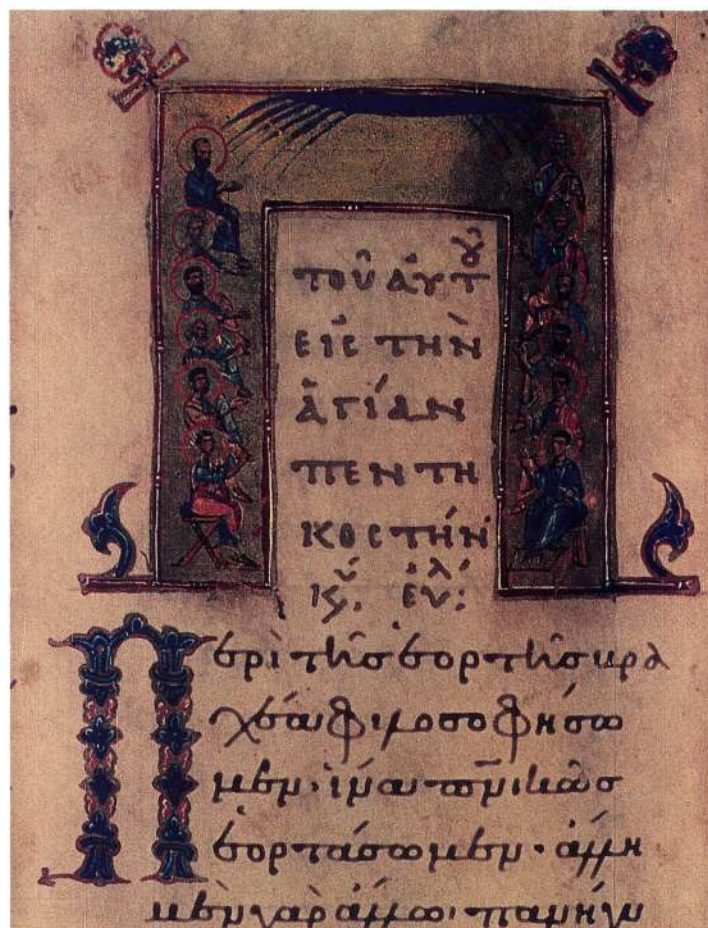 ΤΟΥ ΑΥΤȢ
ΕΙC ΤΗΝ
ΑΓΙΑΝ
ΠΕΝΤΗ
ΚΟCΤΗΝ
Κ̅Ε̅ ΕΥΛ:
Περὶ τῆς ἑορτῆς βρα
χέα φιλοσοφήσω
μεν· ἵνα πν̅ικῶς
ἑορτάσωμεν· ἄλλη
μὲν γὰρ ἄλλω· πανήγυ